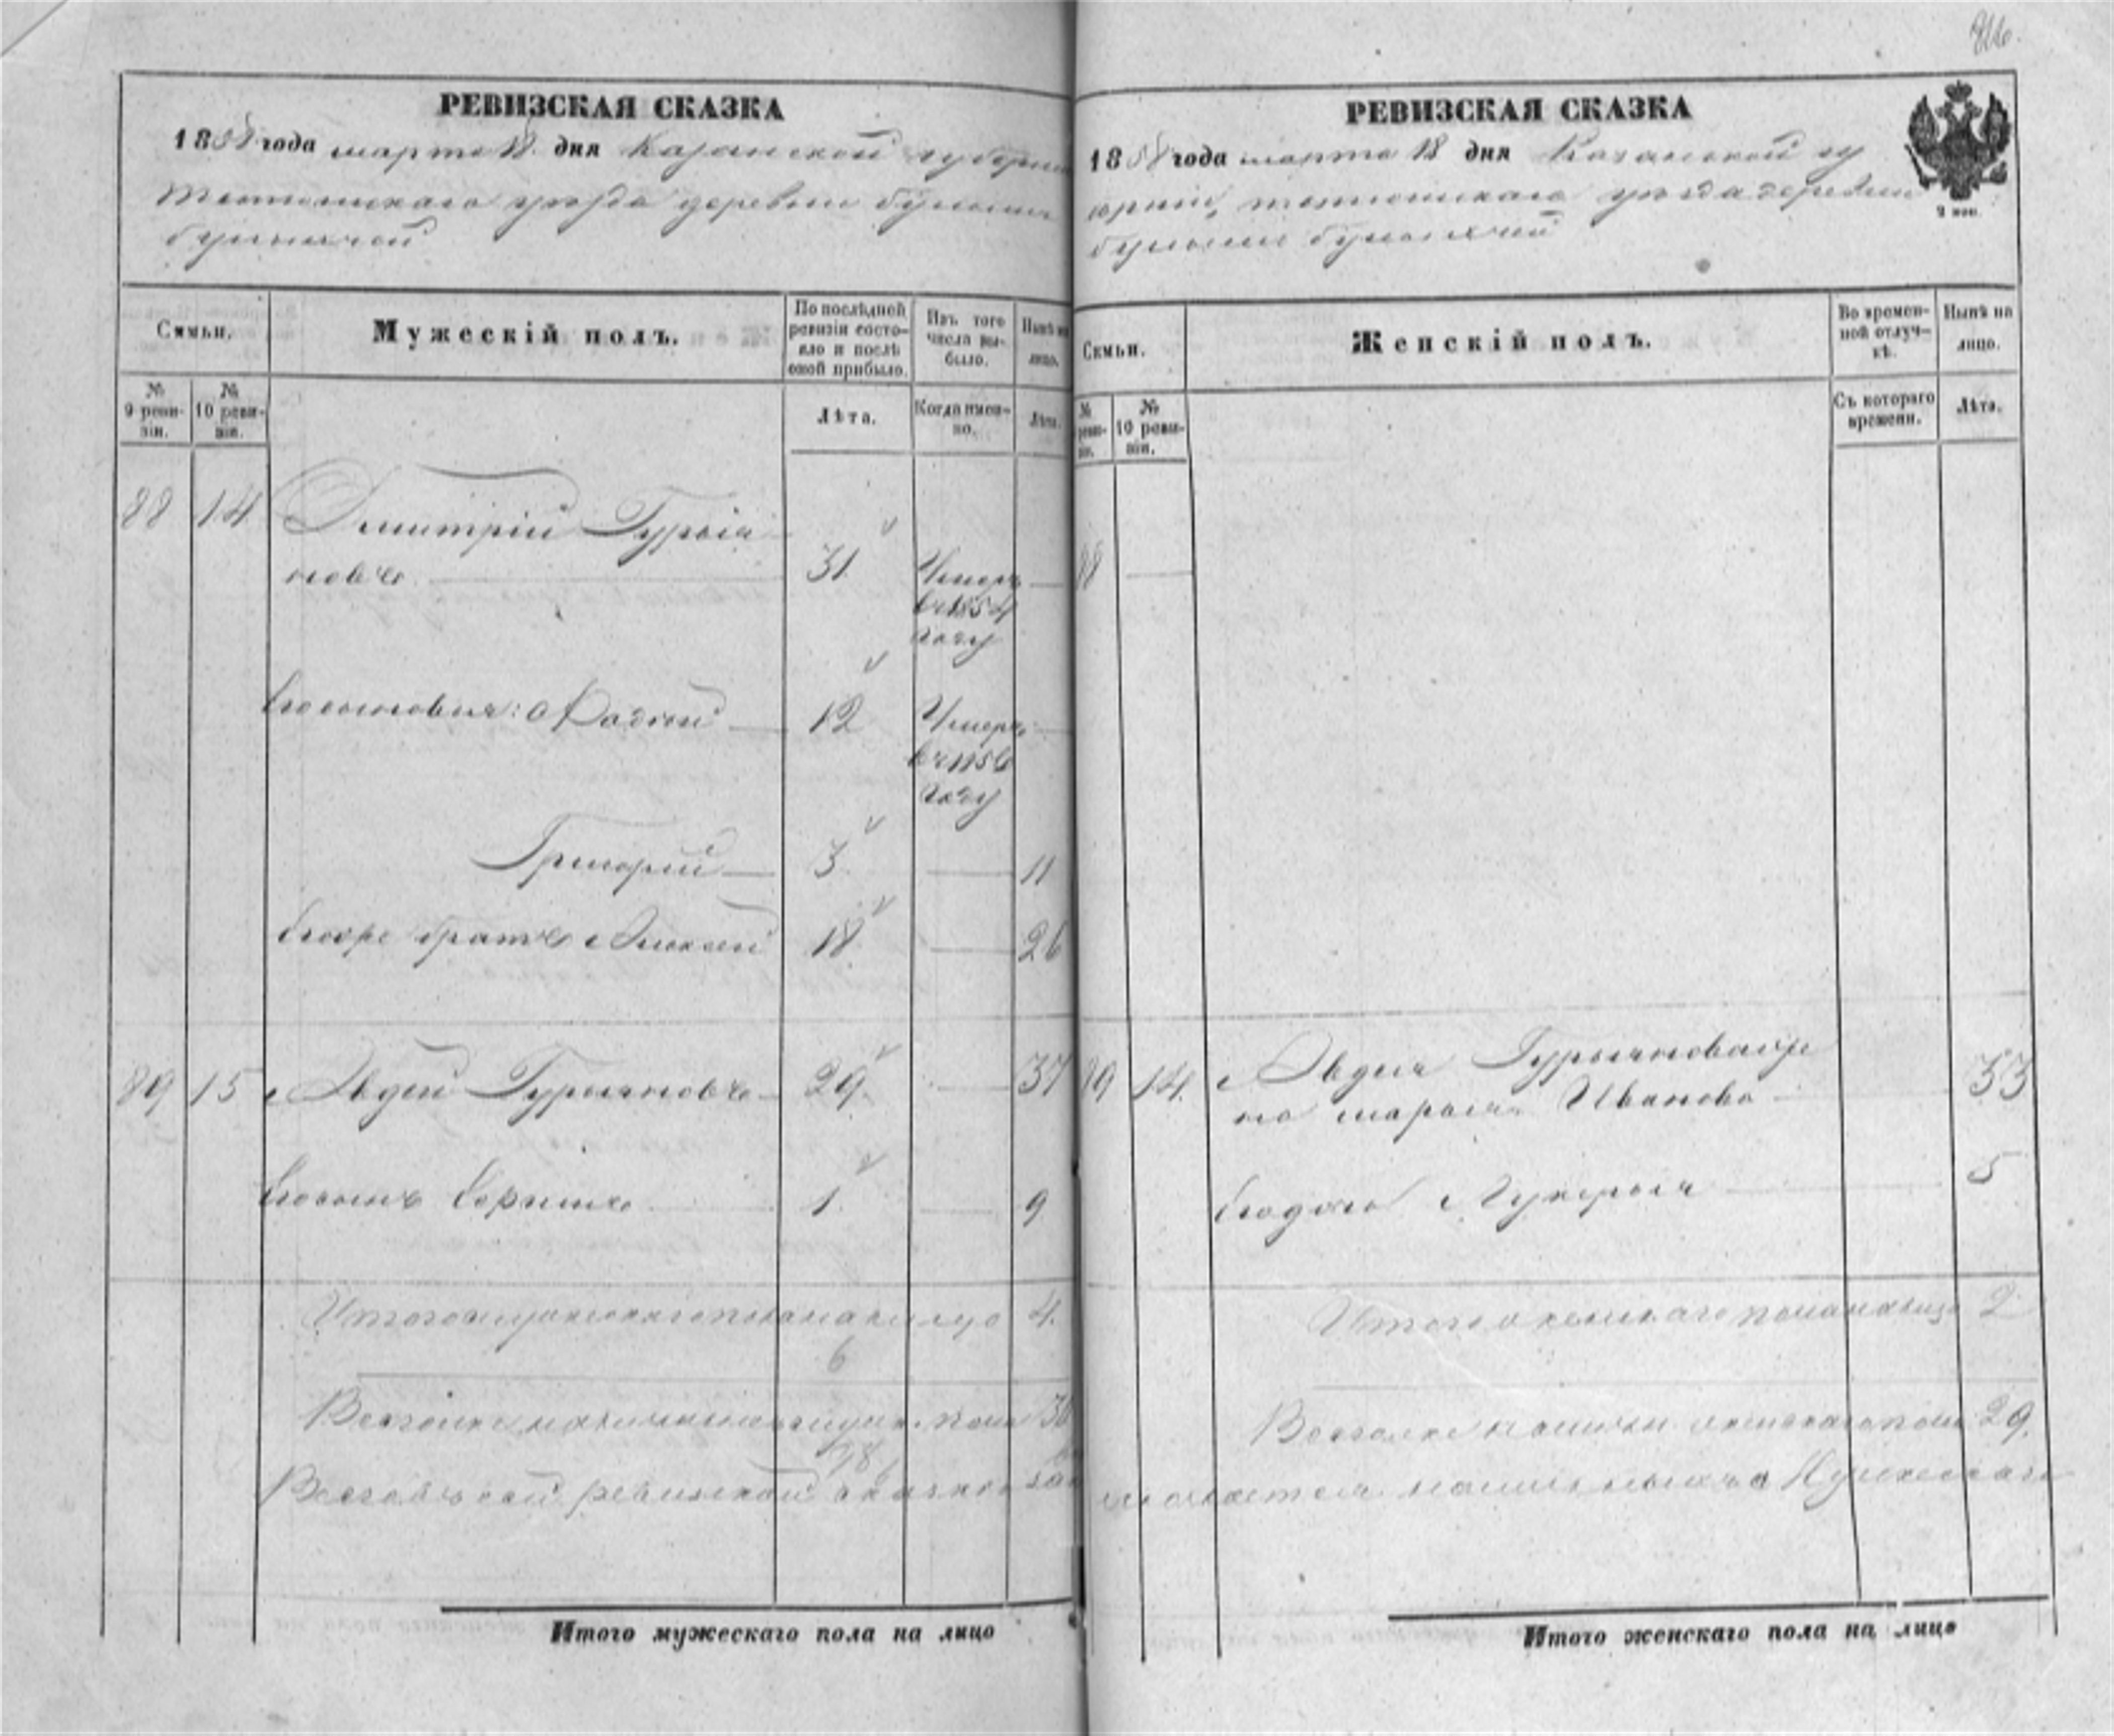 РЕВИЗСКАЯ СКАЗКА
1858 года марта 18 дня Казанской губерни
Тетюшскаго уезда деревни
Семьи.
Мужескій полъ.
По послѣдней ревизіи состояло и послѣ оной прибыло.
Изъ того числа выбыло.
Нынѣ на лицо.
№ 9 ревизіи.
№ 10 ревизіи.
Лѣта.
Когда именно.
Лѣта.
88 14 Дмитрій Гурья
новъ 31 Умеръ
въ 1854
году
Его сыновья: Фадей 12 Умеръ
въ 1856
году
Григорій 3 11
Его же братъ Алексей 18 26
89 15 Авдей Гурьяновъ 29 37
Его сынъ 1 9
Итого мужескаго пола на лицо 4.
6
Всего же наличныхъ муж. пола
Всего въ сей ревизской сказке
Итого мужескаго пола на лицо
РЕВИЗСКАЯ СКАЗКА
1858 года марта 18 дня Казанской гу
берніи, тетюшскаго уезда деревни
2 коп.
Семьи.
Женскій полъ.
Во временной отлучкѣ.
Нынѣ на лицо.
№ ревизіи.
№ 10 ревизіи.
Съ котораго времени.
Лѣта.
88
89 14. Авдея Гурьянова же
на марья Иванова 33
Его дочь Лукерья 5
Итого женскаго пола на лицо 2
Всего же наличн. женскаго пола 29.
наличныхъ Мужескаго
Итого женскаго пола на лицо